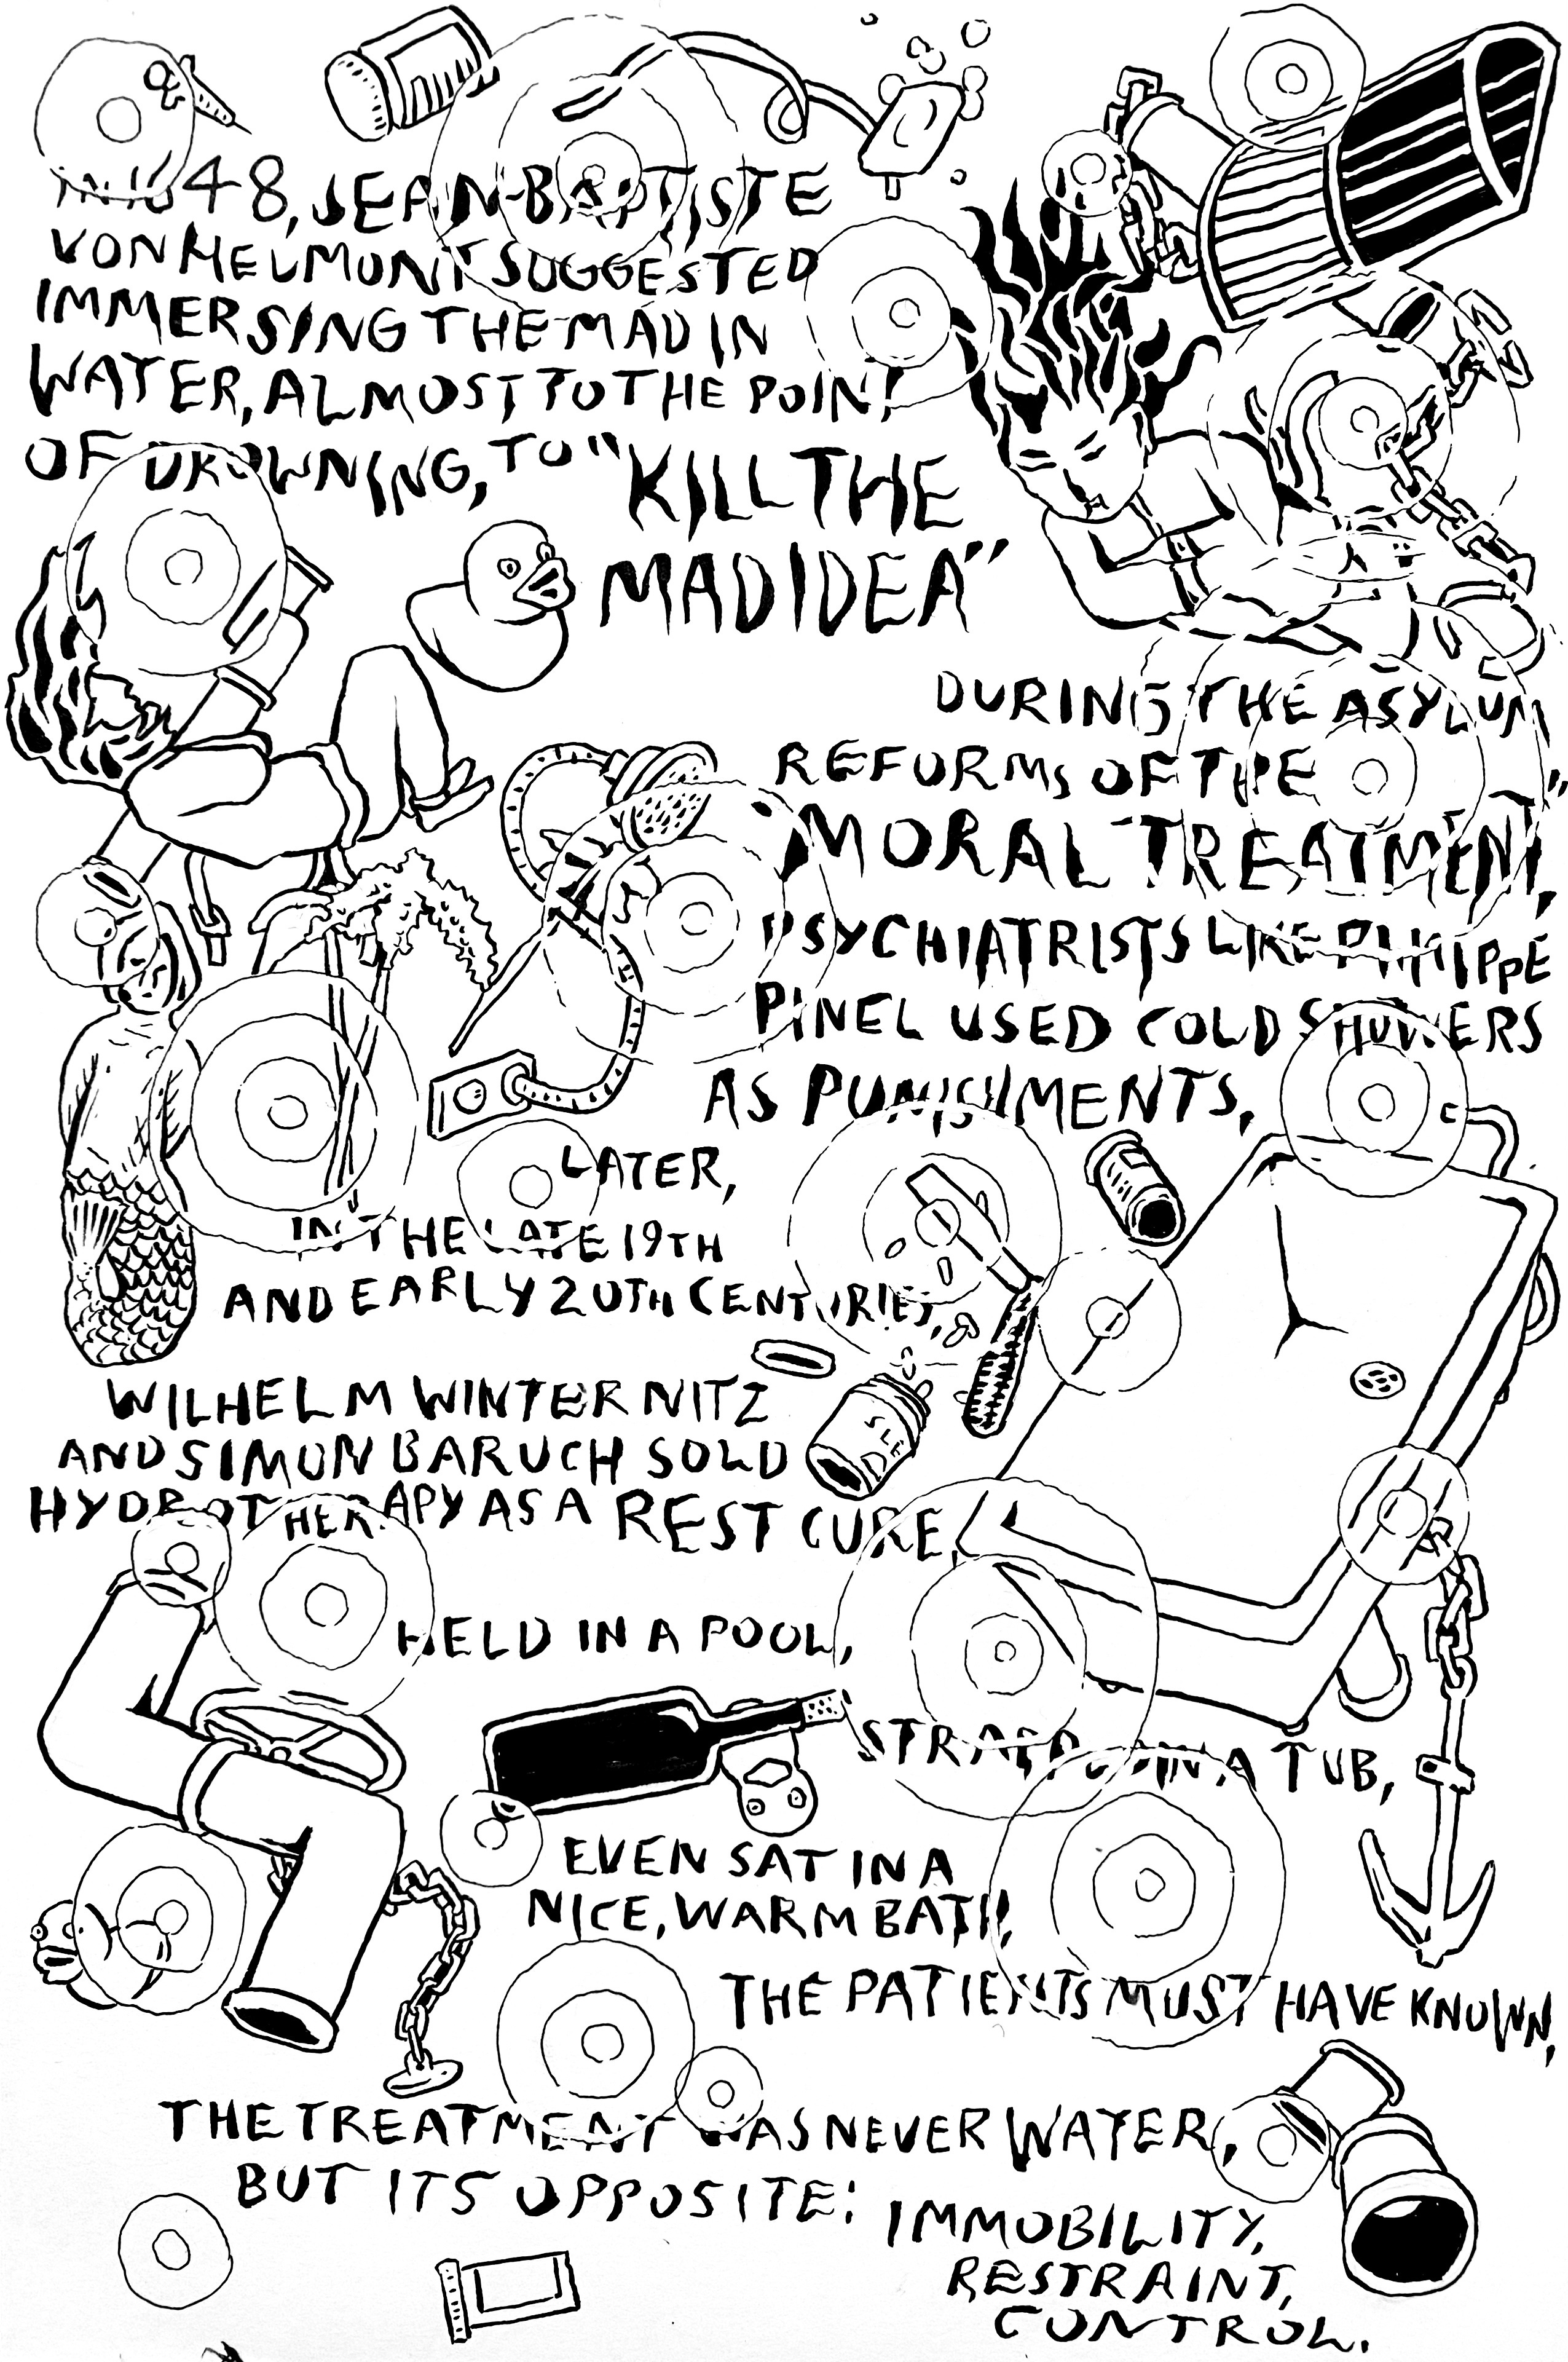 IN 1648, JEAN-BAPTISTE
VON HELMONT SUGGESTED
IMMERSING THE MAD IN
WATER, ALMOST TO THE POINT
OF DROWNING, TO "KILL THE
MAD IDEA"
DURING THE ASYLUM
REFORMS OF THE
"MORAL TREATMENT,"
PSYCHIATRISTS LIKE PHILIPPE
PINEL USED COLD SHOWERS
AS PUNISHMENTS,
LATER,
IN THE LATE 19TH
AND EARLY 20TH CENTURIES,
WILHELM WINTERNITZ
AND SIMON BARUCH SOLD
HYDROTHERAPY AS A REST CURE,
HELD IN A POOL,
STRAPPED IN A TUB,
EVEN SAT IN A
NICE, WARM BATH,
THE PATIENTS MUST HAVE KNOWN,
THE TREATMENT WAS NEVER WATER,
BUT ITS OPPOSITE: IMMOBILITY,
RESTRAINT,
CONTROL.